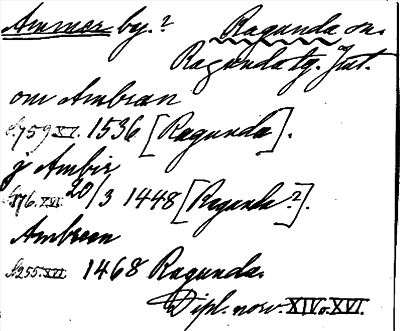 Ammer by.? Ragunda sn.
Ragunda tg. Jut.
om Ambran
S. 759 XV. 1536 [Ragunda].
j Ambir
S. 176. XVI. 20/3 1448 [Regunda?].
Ambreen
S. 255. XVI. 1468 Ragunda.
Dipl. norv. XIV o. XVI.